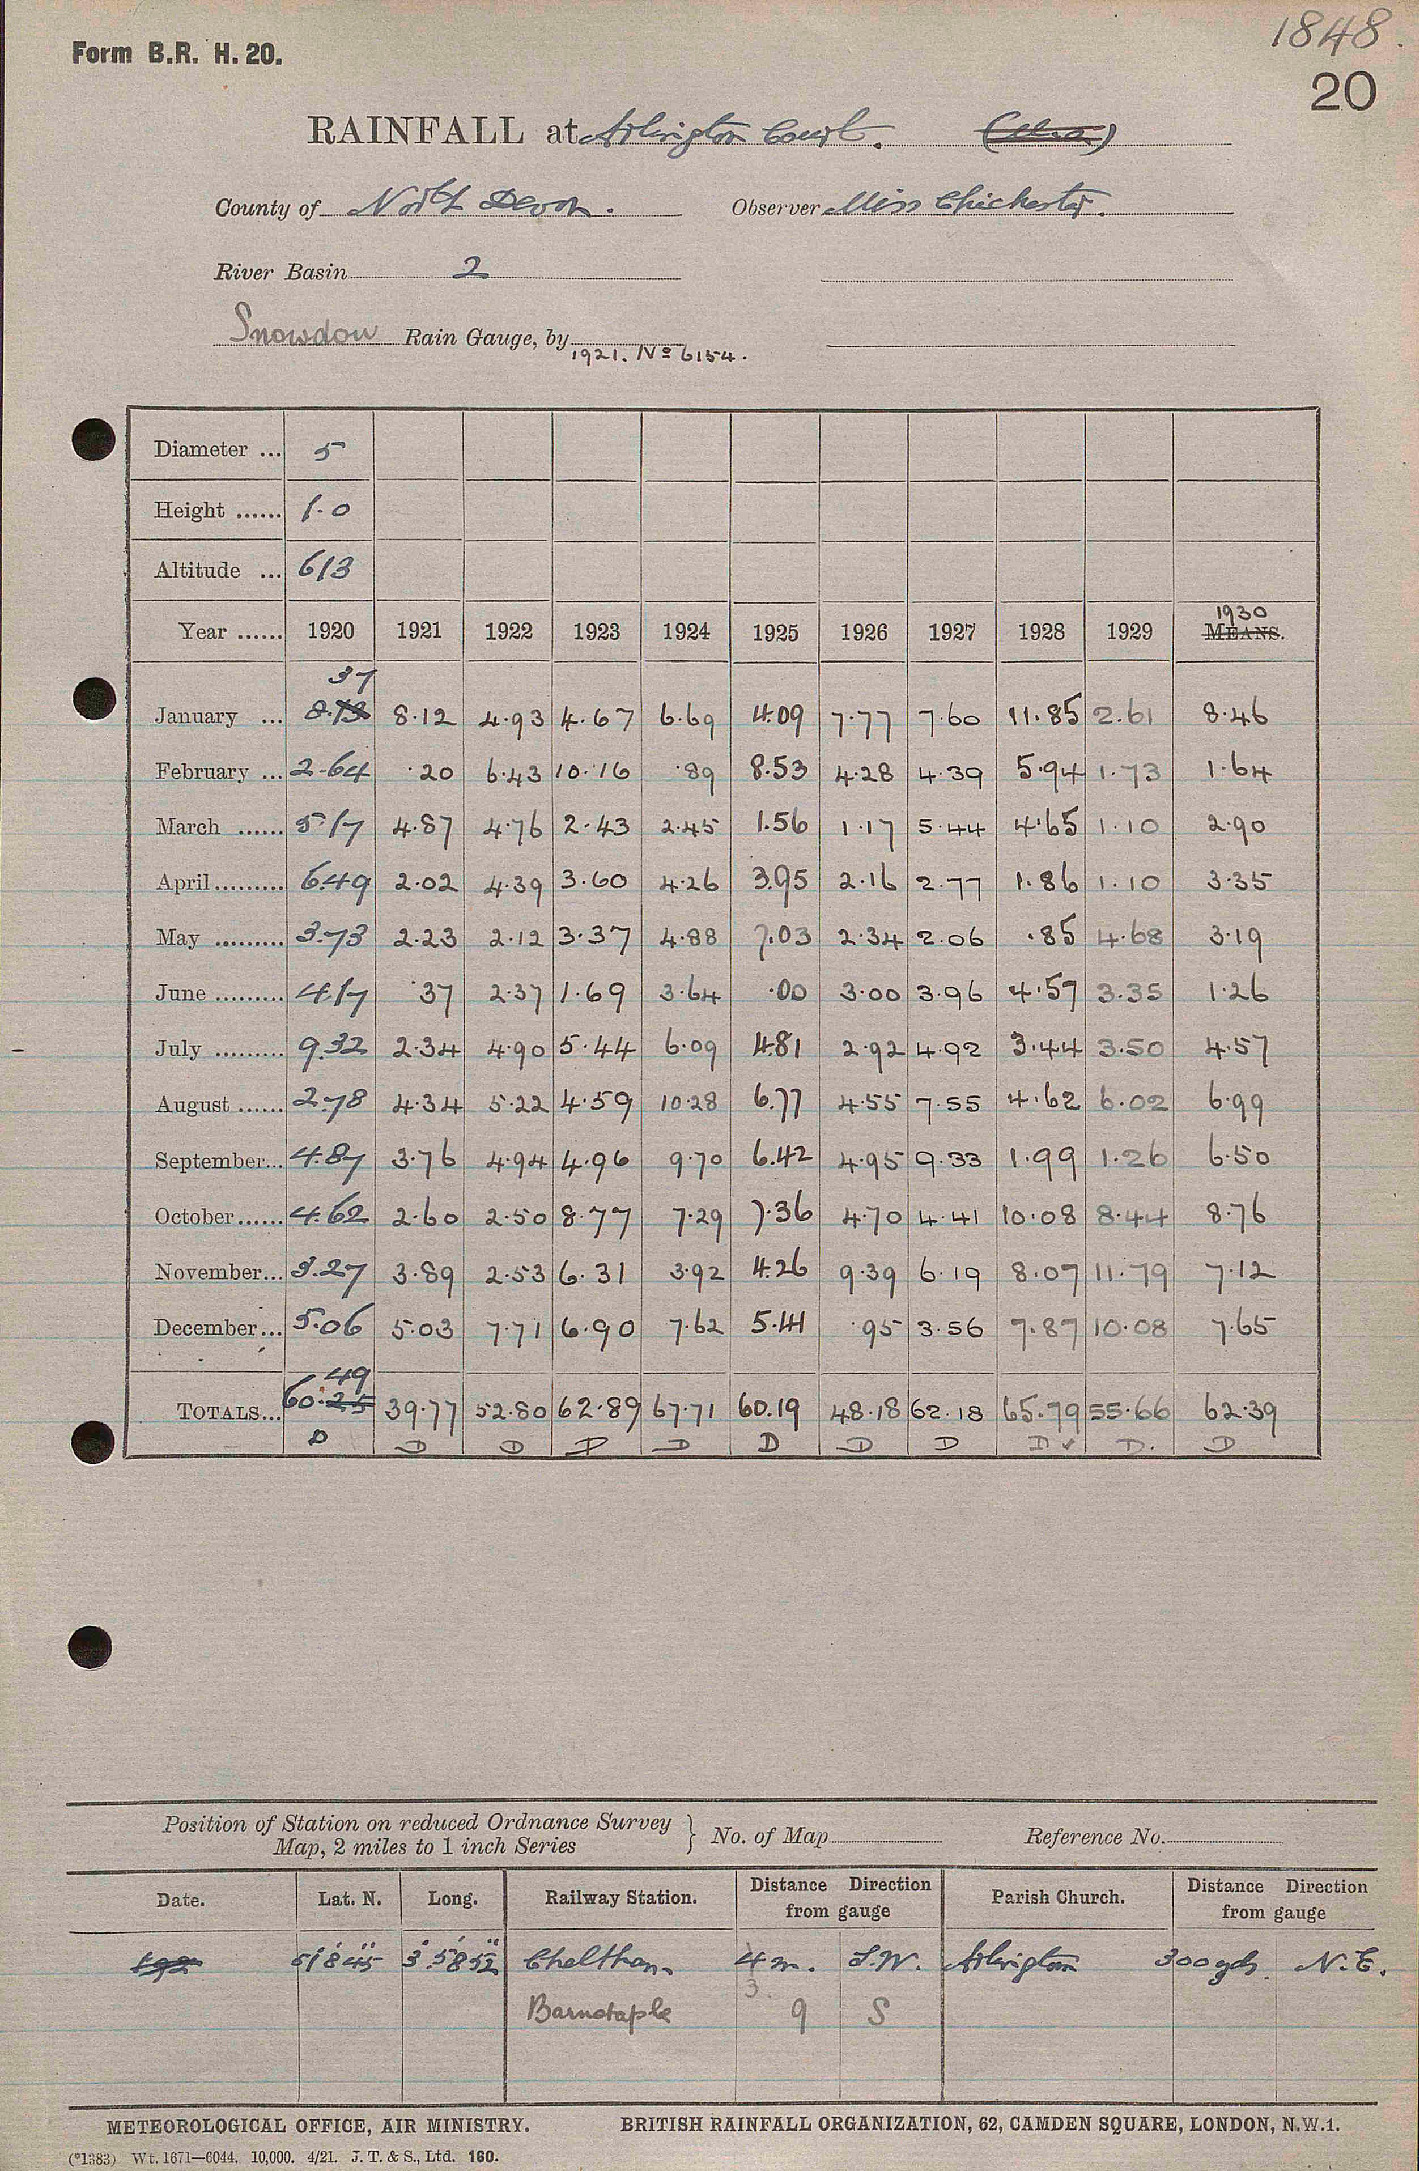 1848.
Form B.R. H. 20.
20
RAINFALL at Arlington Court.
County of North Devon. Observer Miss Chichester.
River Basin 2
Snowdon Rain Gauge, by
1921. No 6154.
Diameter ... 5
Height ...... 1.0
Altitude ... 613
1930
Year ...... 1920 1921 1922 1923 1924 1925 1926 1927 1928 1929 MEANS.
37
January ... 8.13 8.12 4.93 4.67 6.69 4.09 7.77 7.60 11.85 2.61 8.46
February ... 2.64 .20 6.43 10.16 .89 8.53 4.28 4.39 5.94 1.73 1.64
March ...... 5.17 4.87 4.76 2.43 2.45 1.56 1.17 5.44 4.65 1.10 2.90
April ......... 6.49 2.02 4.39 3.60 4.26 3.95 2.16 2.77 1.86 1.10 3.35
May ......... 3.73 2.23 2.12 3.37 4.88 7.03 2.34 2.06 .85 4.68 3.19
June ......... 4.17 .37 2.37 1.69 3.64 .00 3.00 3.96 4.57 3.35 1.26
July ......... 9.32 2.34 4.90 5.44 6.09 4.81 2.92 4.92 3.44 3.50 4.57
August ...... 2.78 4.34 5.22 4.59 10.28 6.77 4.55 7.55 4.62 6.02 6.99
September... 4.87 3.76 4.94 4.96 9.70 6.42 4.95 9.33 1.99 1.26 6.50
October ...... 4.62 2.60 2.50 8.77 7.29 7.36 4.70 4.41 10.08 8.44 8.76
November... 3.27 3.89 2.53 6.31 3.92 4.26 9.39 6.19 8.07 11.79 7.12
December... 5.06 5.03 7.71 6.90 7.62 5.41 .95 3.56 7.87 10.08 7.65
49
TOTALS... 60.25 39.77 52.80 62.89 67.71 60.19 48.18 62.18 65.79 55.66 62.39
D D D D D D D D D ✓ D. D
Position of Station on reduced Ordnance Survey
Map, 2 miles to 1 inch Series } No. of Map Reference No.
Date. Lat. N. Long. Railway Station. Distance Direction from gauge Parish Church. Distance Direction from gauge
192 51° 8' 45" 3° 58' 52" Chelfham 4 m. S.W. Arlington 300 yds. N.E.
3.
Barnstaple 9 S
METEOROLOGICAL OFFICE, AIR MINISTRY. BRITISH RAINFALL ORGANIZATION, 62, CAMDEN SQUARE, LONDON, N.W.1.
(*1383) Wt. 1671—6044. 10,000. 4/21. J. T. & S., Ltd. 160.